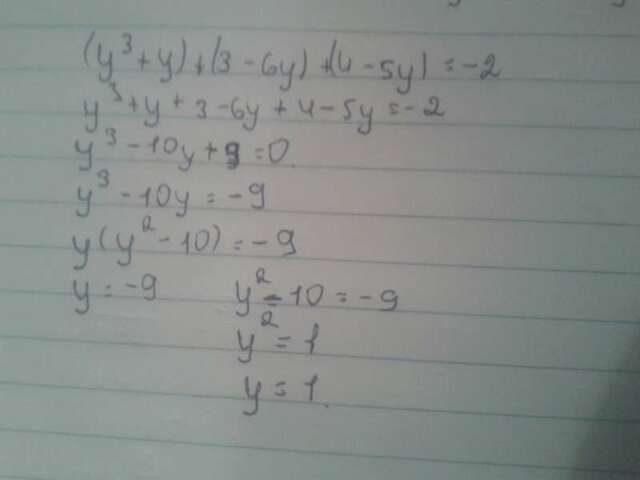 (y³+y)+(3-6y)+(4-5y)=-2
y³+y+3-6y+4-5y=-2
y³-10y+9=0
y³-10y=-9
y(y²-10)=-9
y=-9 y²-10=-9
y²=1
y=1.